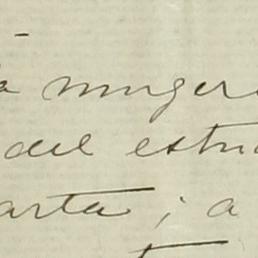 a muger
del estu
arta; a